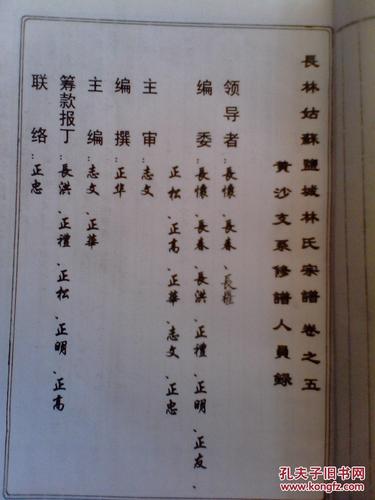 長林姑蘇鹽城林氏宗譜 卷之五
黄沙支系修譜人員錄
领导者：長懷、長春、長
编委：長懷、長春、長洪、正禮、正明、正友、
正松、正高、正華、志文、正忠
主审：志文
编撰：正华
主编：志文、正華
筹款报丁：長洪、正禮、正松、正明、正高
联络：正忠
孔夫子旧书网
www.kongfz.com